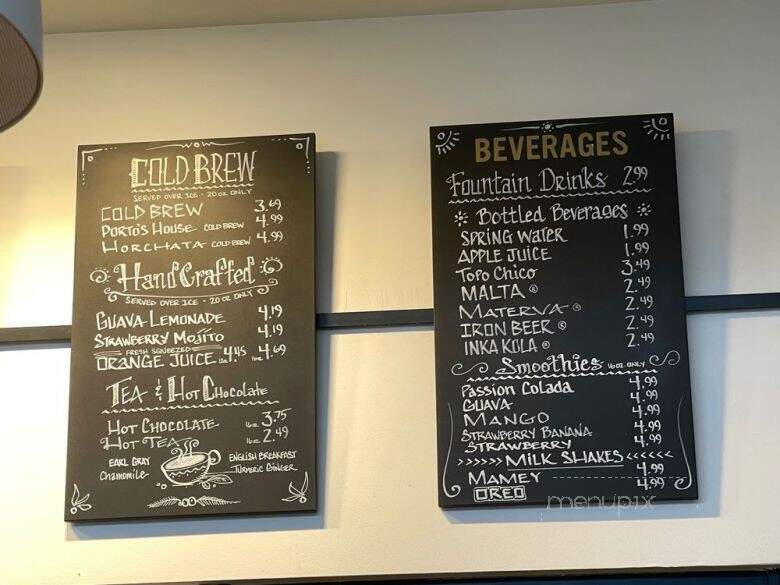 COLD BREW
SERVED OVER ICE - 20 OZ ONLY
COLD BREW 3.69
PORTO'S HOUSE COLD BREW 4.99
HORCHATA COLD BREW 4.99
HandCrafted
SERVED OVER ICE - 20 OZ ONLY
GUAVA-LEMONADE 4.19
STRAWBERRY MOJITO 4.19
FRESH SQUEEZED
ORANGE JUICE 4.45 4.69
TEA & HOT CHOCOLATE
HOT CHOCOLATE 16oz. 3.75
HOT TEA 16oz. 2.49
EARL GRAY ENGLISH BREAKFAST
Chamomile TURMERIC GINGER
BEVERAGES
Fountain Drinks 2.99
Bottled Beverages
SPRING WATER 1.99
APPLE JUICE 1.99
Topo Chico 3.49
MALTA ® 2.49
MATERVA ® 2.49
IRON BEER ® 2.49
INKA KOLA ® 2.49
Smoothies 16oz. ONLY
Passion Colada 4.99
GUAVA 4.99
MANGO 4.99
STRAWBERRY BANANA 4.99
STRAWBERRY 4.99
>>>>>> MILK SHAKES <<<<<<
MAMEY 4.99
OREO 4.99
menupix